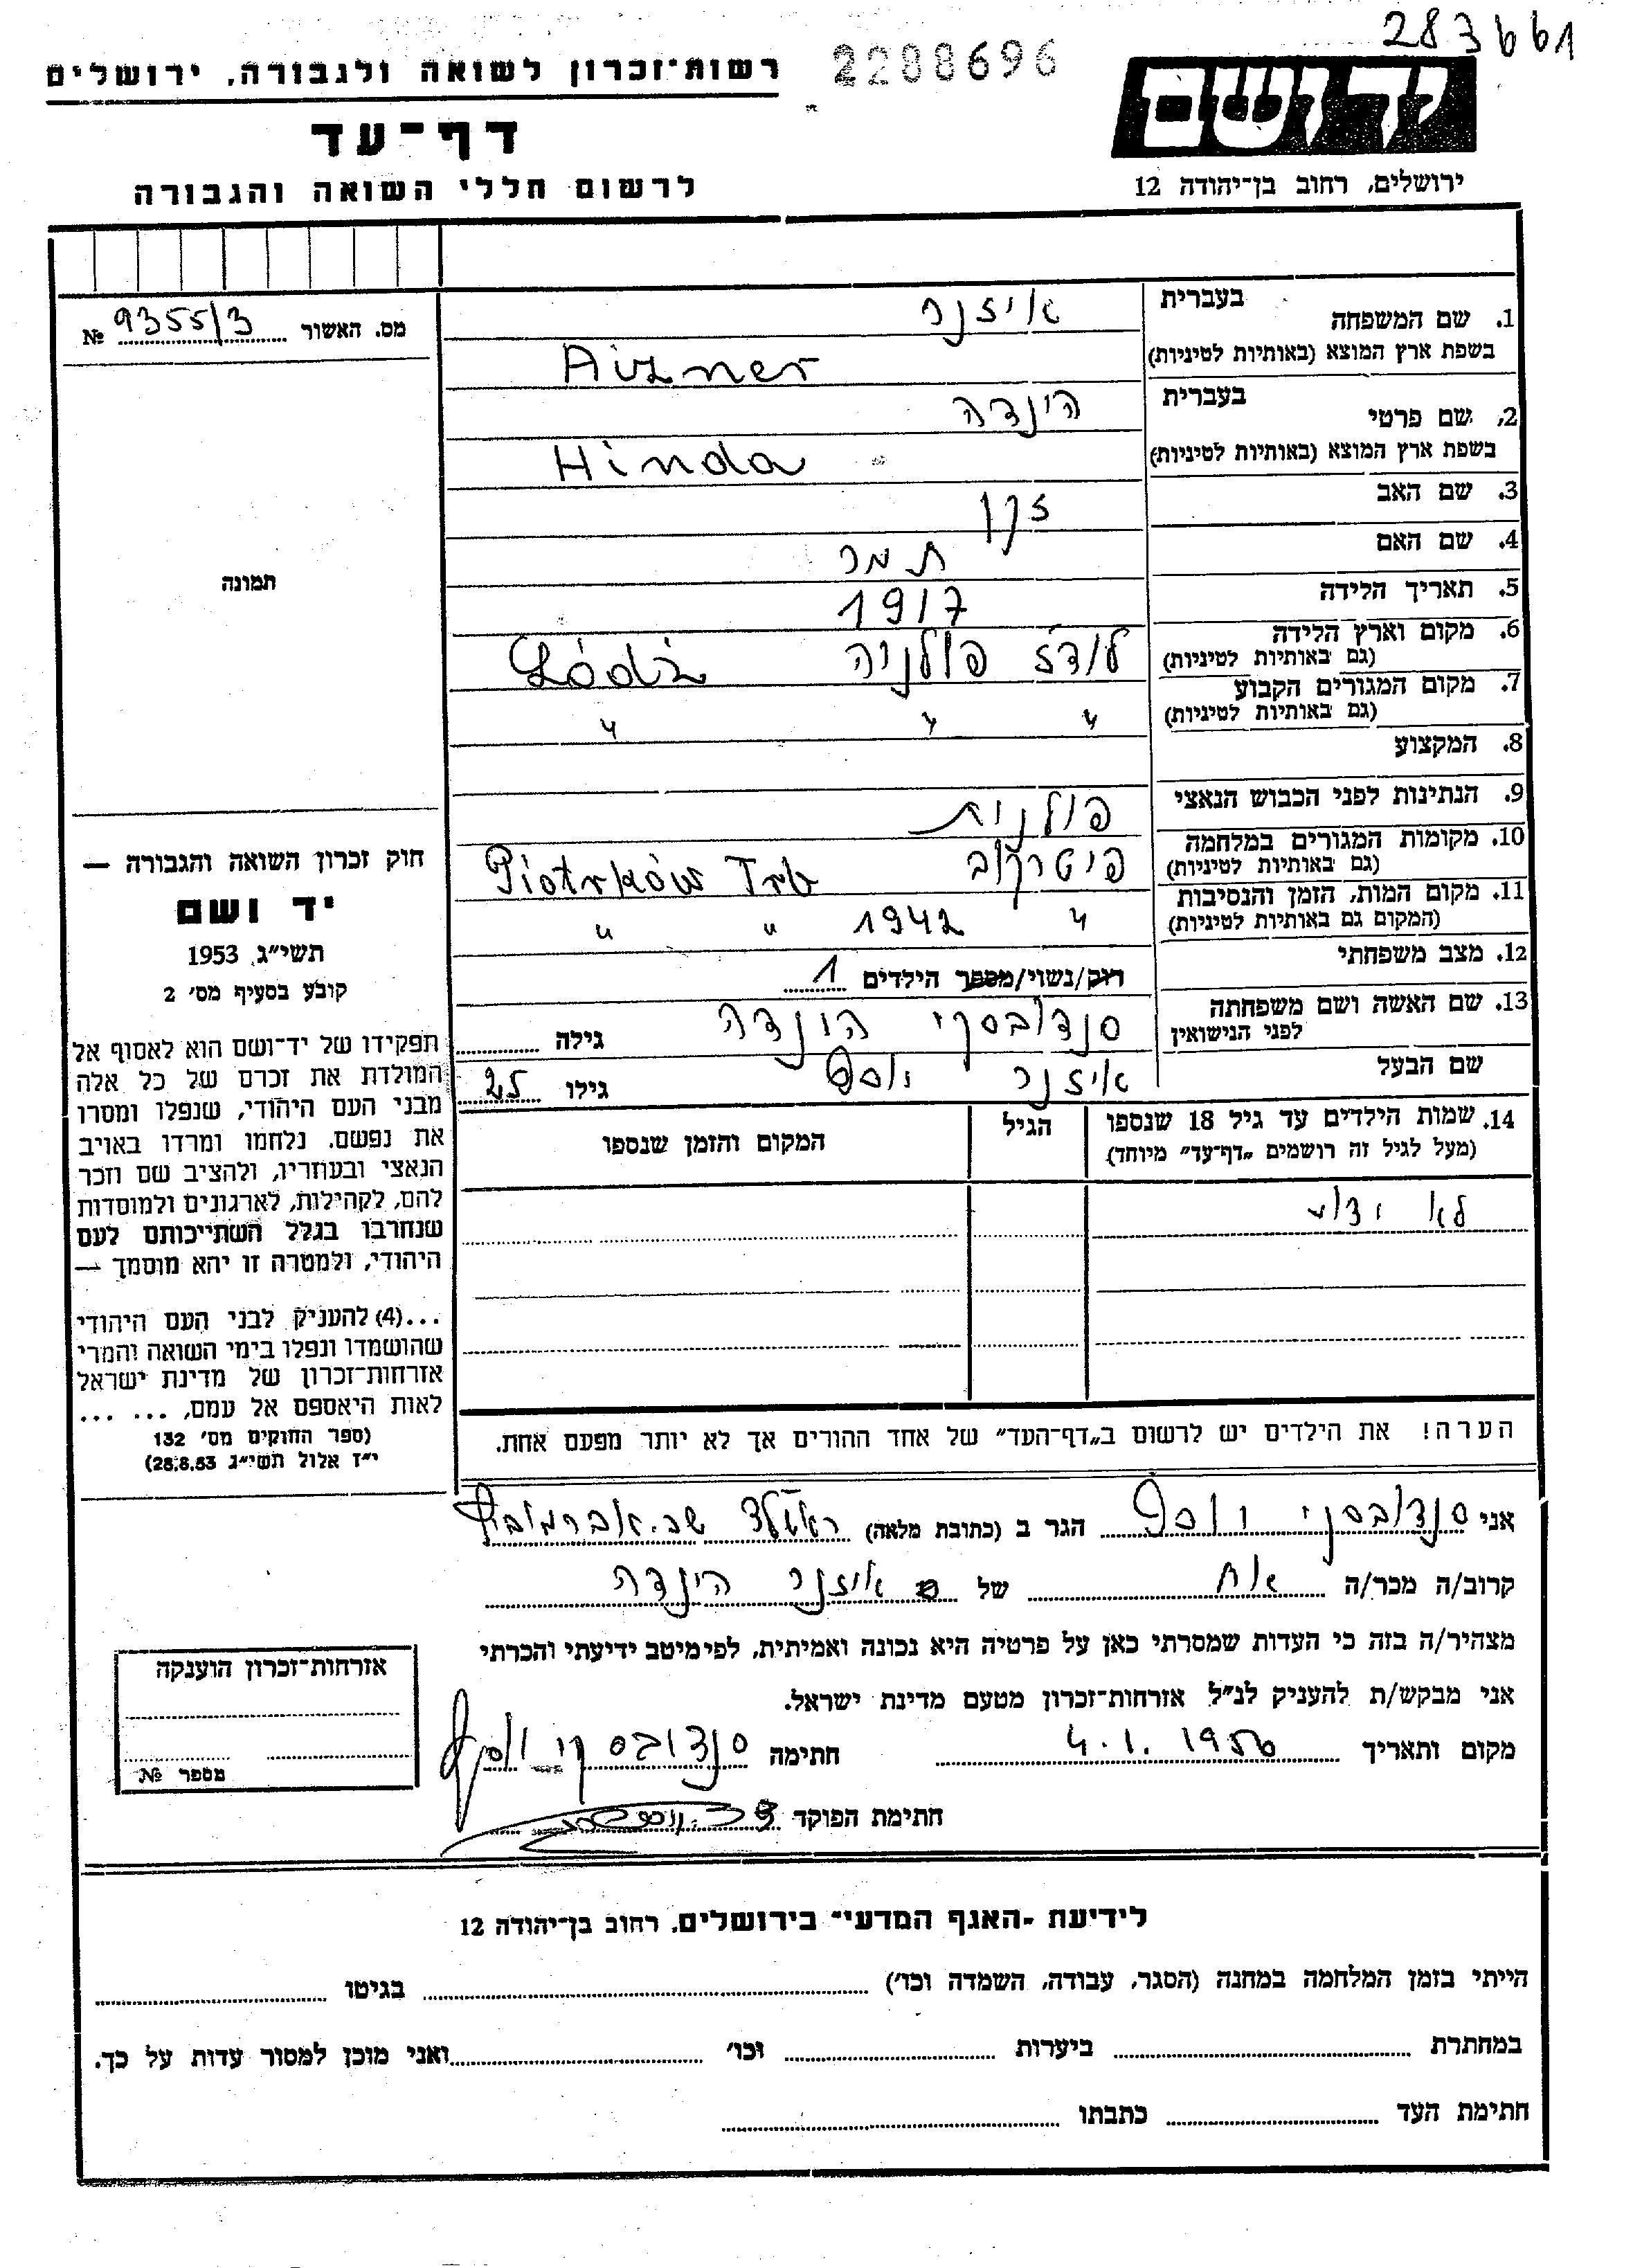 283661
רשות־זכרון לשואה ולגבורה, ירושלים
2288696
יד ושם
דף־עד
לרשום חללי השואה והגבורה
ירושלים, רחוב בן־יהודה 12
מס. האשור 9355/3 №
תמונה
בעברית
1. שם המשפחה איזנר
בשפת ארץ המוצא (באותיות לטיניות) Aizner
בעברית
2. שם פרטי הינדה
בשפת ארץ המוצא (באותיות לטיניות) Hinda
3. שם האב זקן
4. שם האם תמר
5. תאריך הלידה 1917
6. מקום וארץ הלידה לודז פולניה Łódź
(גם באותיות לטיניות)
7. מקום המגורים הקבוע " " "
(גם באותיות לטיניות)
8. המקצוע
9. הנתינות לפני הכבוש הנאצי פולנית
10. מקומות המגורים במלחמה פיטרקוב Piotrków Trb
(גם באותיות לטיניות)
11. מקום המות, הזמן והנסיבות " 1942 " "
(המקום גם באותיות לטיניות)
12. מצב משפחתי רוק/נשוי/מספר הילדים 1
13. שם האשה ושם משפחתה סנדובסקי הינדה גילה
לפני הנישואין
שם הבעל איזנר יוסף גילו 25
14. שמות הילדים עד גיל 18 שנספו הגיל המקום והזמן שנספו
(מעל לגיל זה רושמים „דף־עד” מיוחד)
לא ידוע
הערה! את הילדים יש לרשום ב„דף־העד” של אחד ההורים אך לא יותר מפעם אחת.
חוק זכרון השואה והגבורה —
יד ושם
תשי״ג 1953
קובע בסעיף מס׳ 2
תפקידו של יד־ושם הוא לאסוף אל
המולדת את זכרם של כל אלה
מבני העם היהודי, שנפלו ומסרו
את נפשם, נלחמו ומרדו באויב
הנאצי ובעוזריו, ולהציב שם וזכר
להם, לקהילות, לארגונים ולמוסדות
שנחרבו בגלל השתייכותם לעם
היהודי, ולמטרה זו יהא מוסמך —
...(4) להעניק לבני העם היהודי
שהושמדו ונפלו בימי השואה והמרי
אזרחות־זכרון של מדינת ישראל
לאות היאספם אל עמם, ... ...
(ספר החוקים מס׳ 132
י״ז אלול תשי״ג 28.8.53)
אני סנדובסקי יוסף הגר ב (כתובת מלאה) שכ. אברמוביץ
קרוב/ה מכר/ה אח של איזנר הינדה
מצהיר/ה בזה כי העדות שמסרתי כאן על פרטיה היא נכונה ואמיתית, לפי מיטב ידיעתי והכרתי
אני מבקש/ת להעניק לנ״ל אזרחות־זכרון מטעם מדינת ישראל.
מקום ותאריך 4.1.1956 חתימה סנדובסקי יוסף
חתימת הפוקד
אזרחות־זכרון הוענקה
מספר №
לידיעת „האגף המדעי” בירושלים, רחוב בן־יהודה 12
הייתי בזמן המלחמה במחנה (הסגר, עבודה, השמדה וכו׳) בגיטו
במחתרת ביערות וכו׳ ואני מוכן למסור עדות על כך.
חתימת העד כתבתו